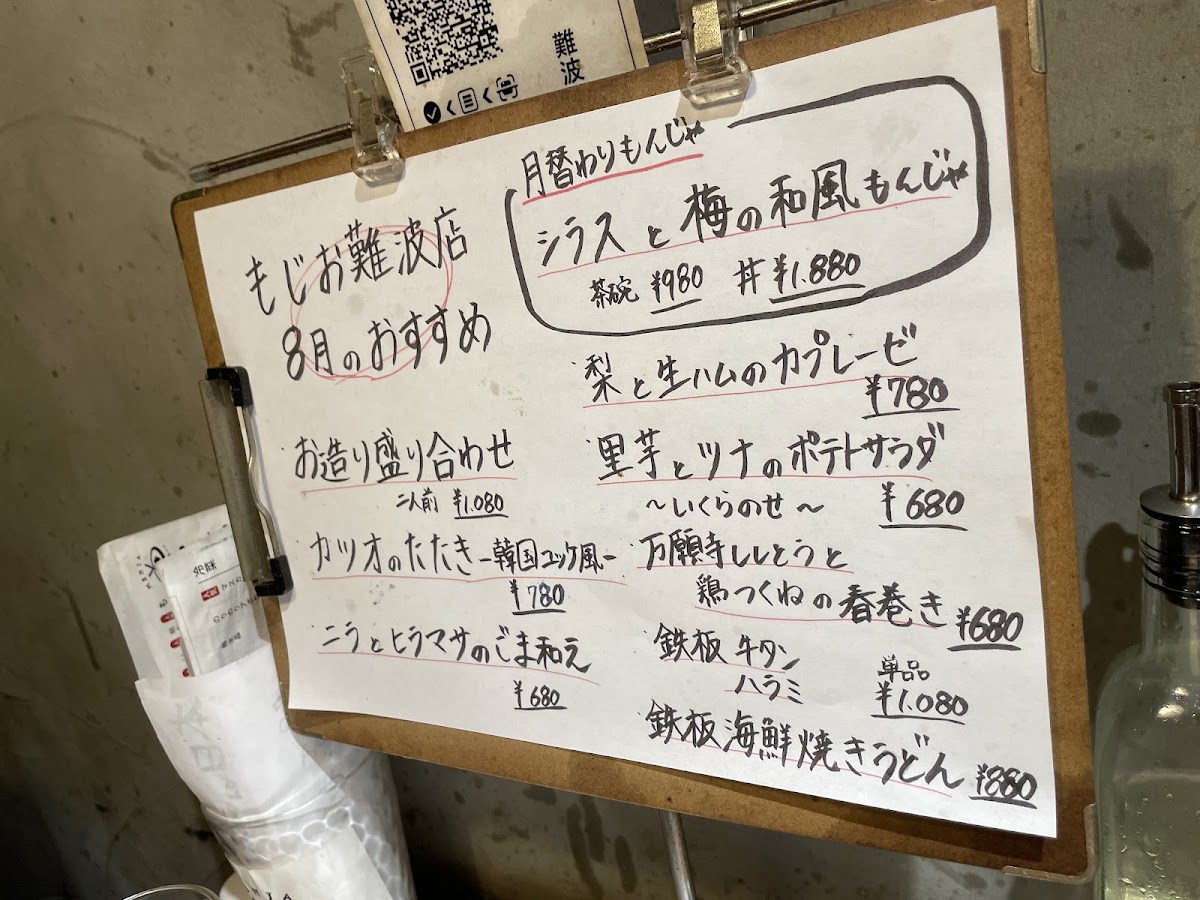 難波
もじお難波店
8月のおすすめ
月替わりもんじゃ
シラスと梅の和風もんじゃ
茶碗 ¥980 丼 ¥1.880
お造り盛り合わせ
二人前 ¥1.080
カツオのたたき-韓国ユッケ風-
¥780
ニラとヒラマサのごま和え
¥680
梨と生ハムのカプレーゼ
¥780
里芋とツナのポテトサラダ
～いくらのせ～ ¥680
万願寺ししとうと
鶏つくねの春巻き ¥680
鉄板 牛タン
ハラミ
単品
¥1.080
鉄板海鮮焼きうどん ¥880